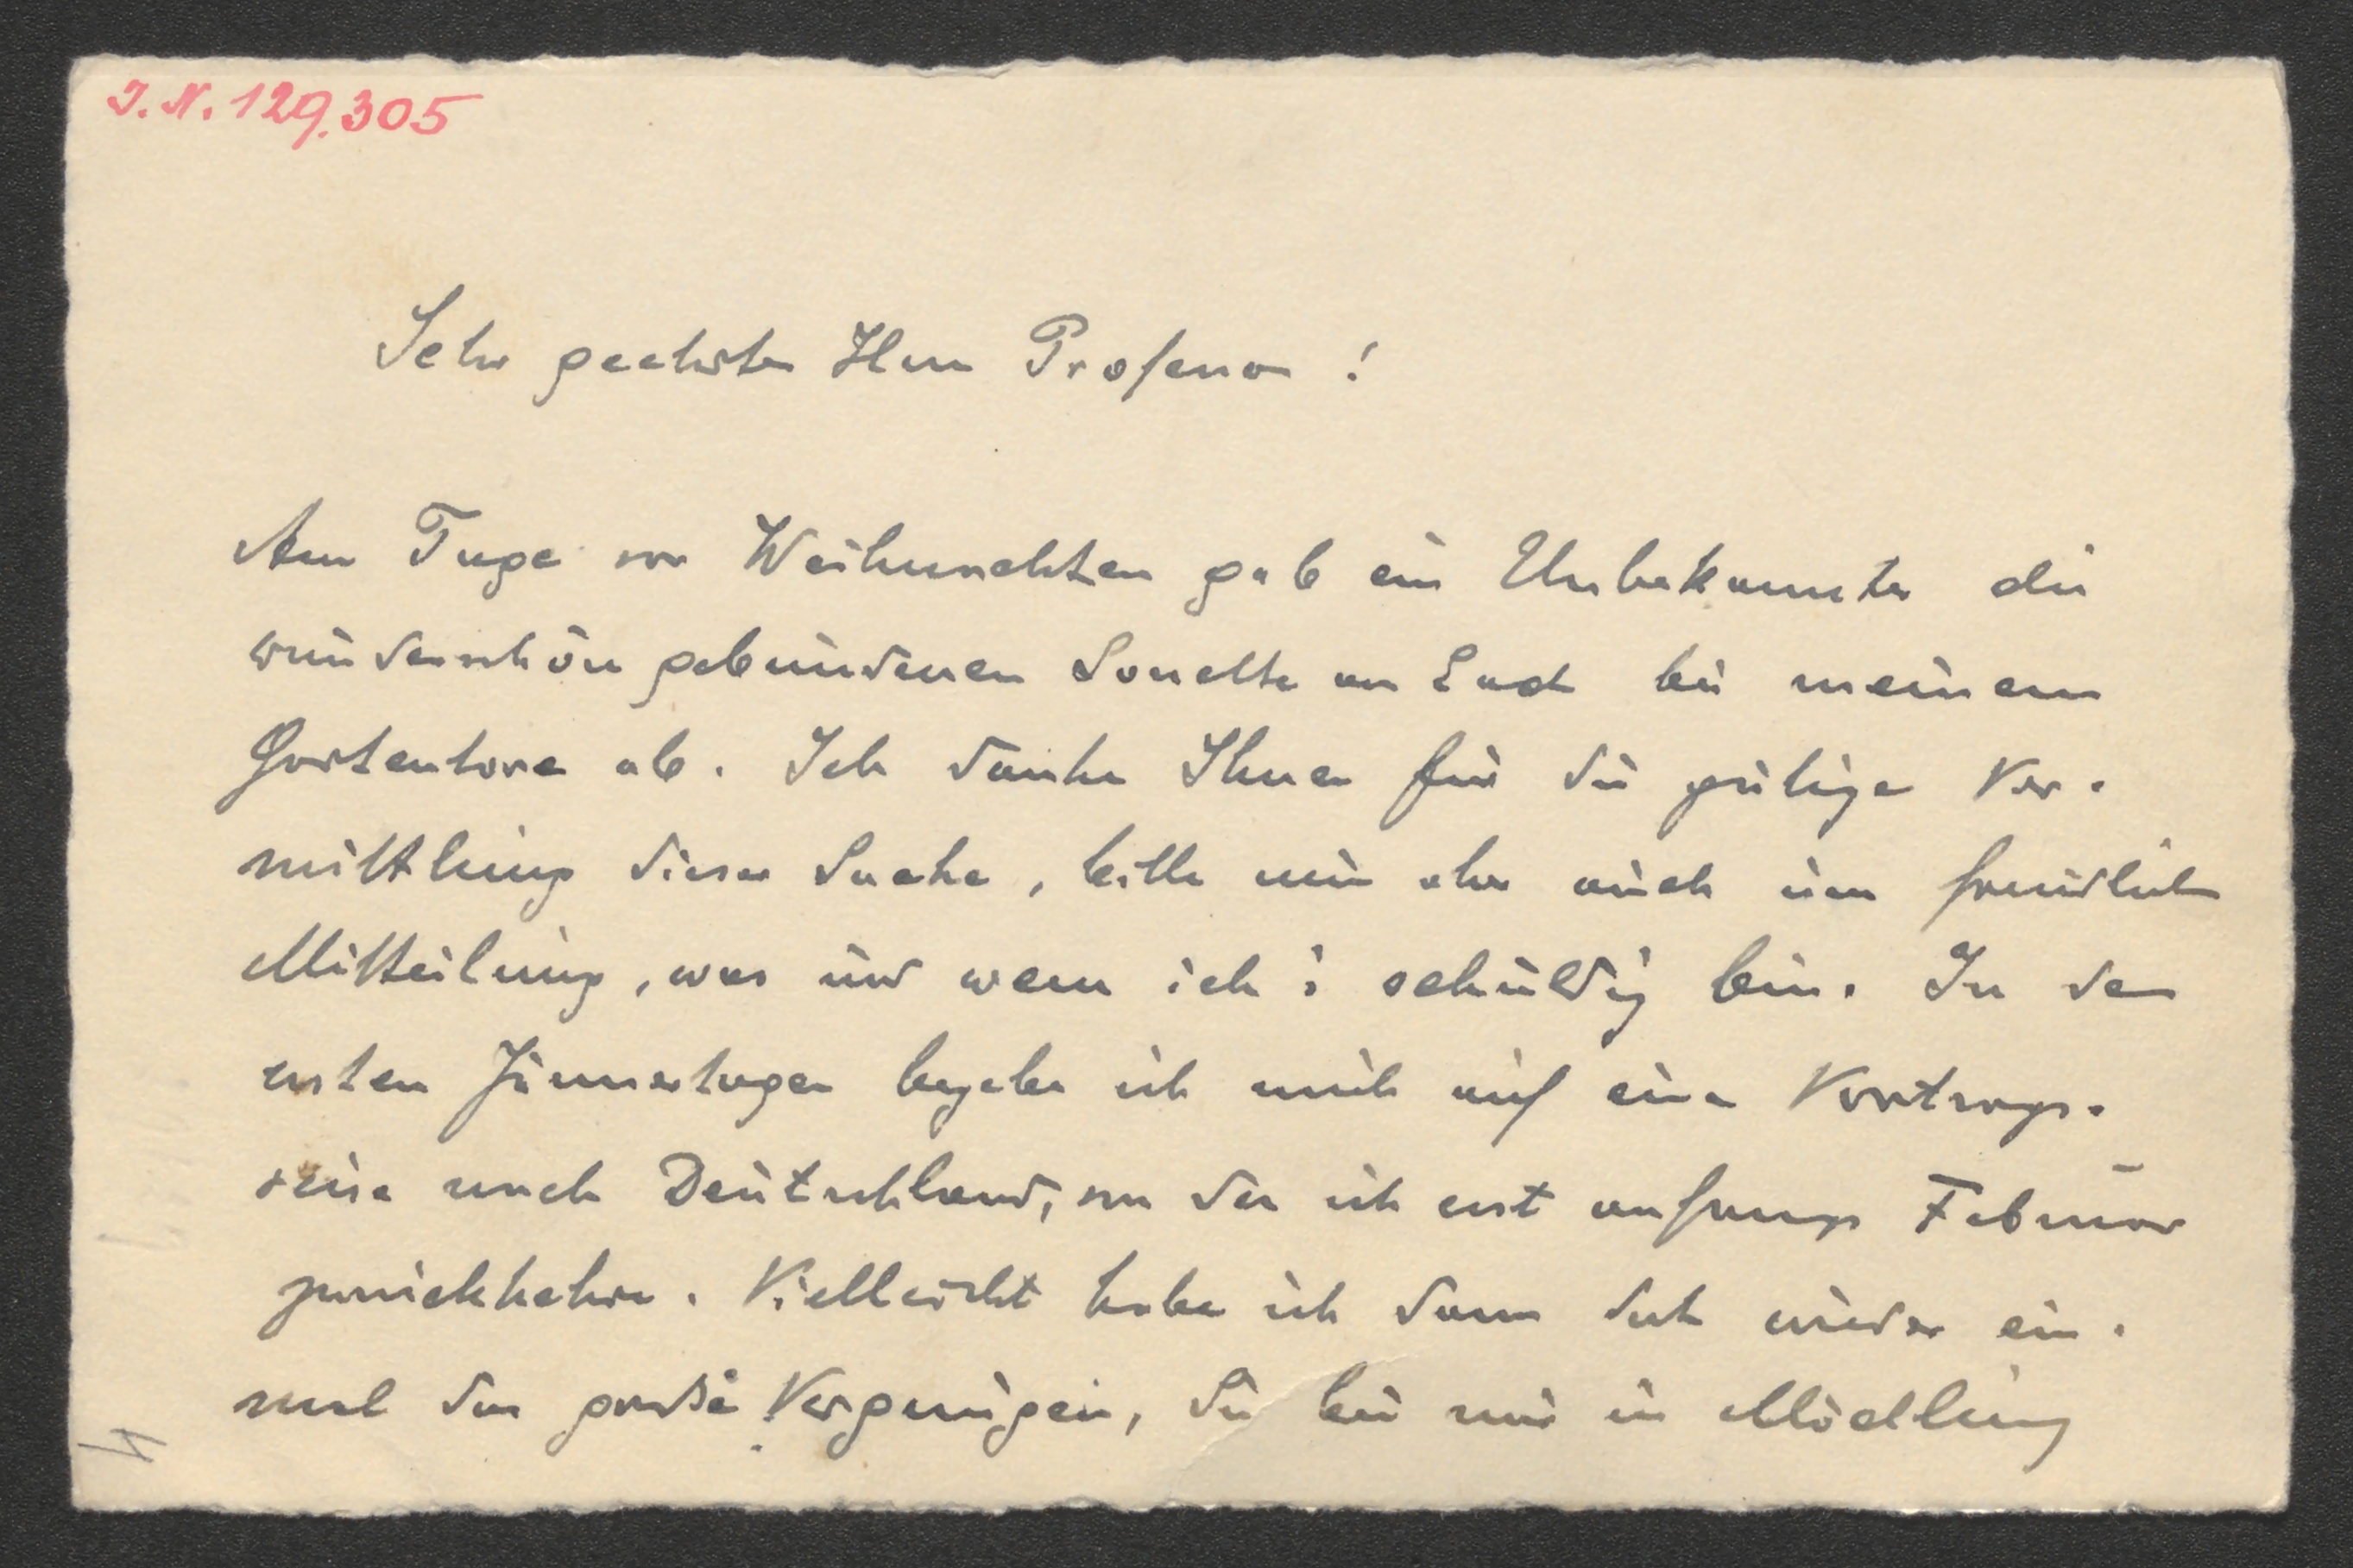 I.N. 129.305
Sehr geehrter Herr Professor!
Am Tage vor Weihnachten gab ein Unbekannter die
wunderschön gebundenen Sonette an Ead bei meinem
Gartentore ab. Ich danke Ihnen für die gütige Ver-
mittlung dieser Sache, bitte nun aber auch um freundliche
Mitteilung, was und wem ich's schuldig bin. In den
ersten Jännertagen begebe ich mich auf eine Vortrags-
reise nach Deutschland, von der ich erst anfangs Februar
zurückkehre. Vielleicht habe ich dann doch wieder ein-
mal das große Vergnügen, Sie bei mir in Mödling